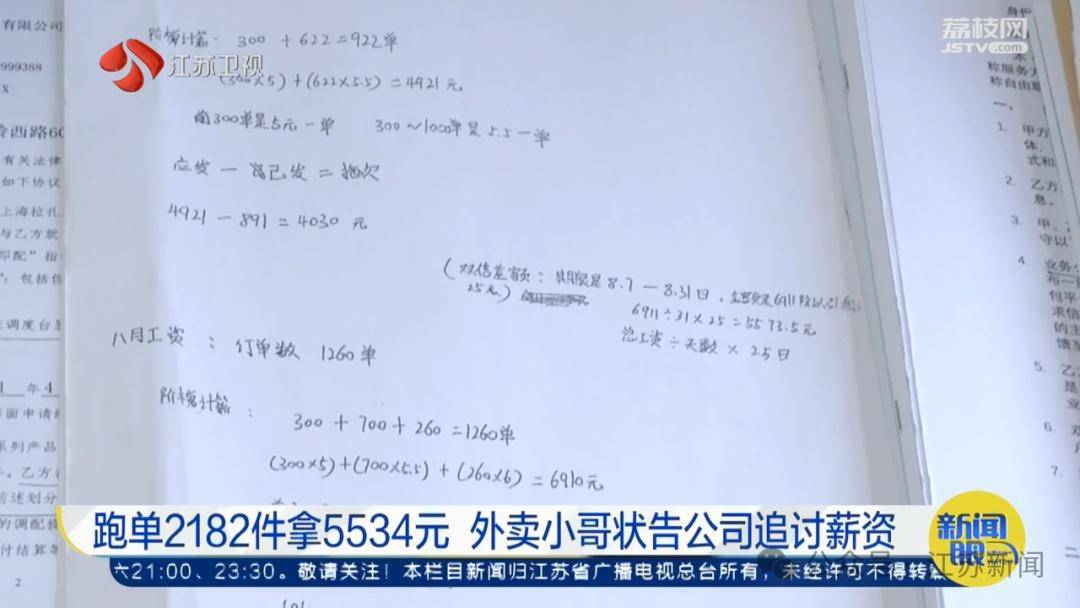 有限公司
阶梯计算： 300 + 622 = 922单
荔枝网
JSTV.com
江苏卫视
999388
X
(300×5) + (622×5.5) = 4921 元
前300单是5元一单 300～1000单是5.5一单
西路60
有关法律
如下协议
应发 － 已发 = 拖欠
4921 － 891 = 4030 元
与乙方就
包括但
(双倍差额： 期限是 8.7 — 8.31日，
25天)
6911÷31×25 = 5573.5元
总工资÷天数 × 25日
调度台
八月工资 ： 订单数 1260单
年4
阶梯计算 ：
300 + 700 + 260 = 1260单
(300×5)+(700×5.5) + (260×6) = 6910元
面申请
系列产品
乙方
前述划分
的调配
付结算
2
身份
本
称服务
称自由
一、
1. 甲方
体、
式和
2. 乙方
息。
3. 甲、
守以
4. 业务
包平
求信
的主
馈至
5. 乙
业
6.
7.
跑单2182件拿5534元 外卖小哥状告公司追讨薪资
新闻眼
公众号 · 江苏新闻
六21:00、23:30。敬请关注！本栏目新闻归江苏省广播电视总台所有，未经许可不得转载